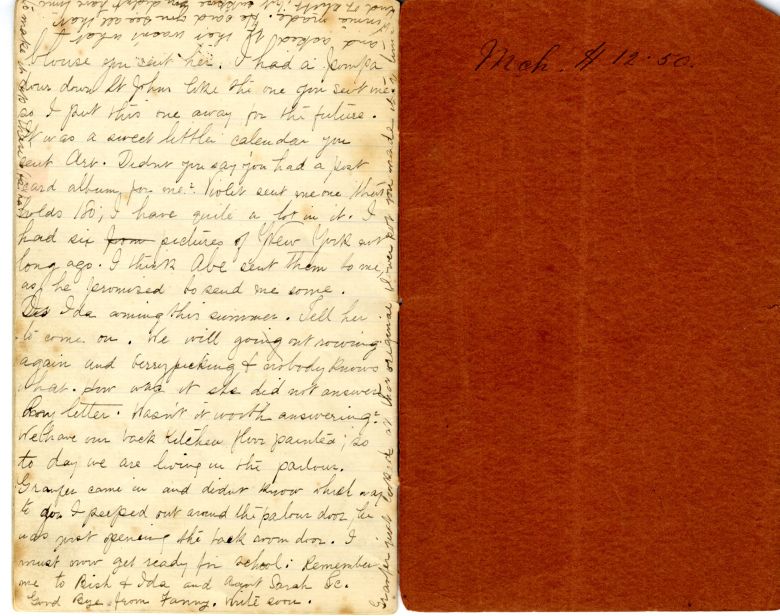 blouse you sent her. I had a pompa
dour down St Johns like the one you sent me.
so I put this one away for the future.
It was a sweet little calendar you
sent Art. Didnt you say you had a post
card album for me? Violet sent me one that
holds 150; I have quite a lot in it. I
had six from pictures of New York not
long ago. I think Abe sent them to me,
as he promised to send me some.
Is Ida coming this summer. Tell her
to come on. We will going out rowing
again and berrypicking & nobody knows
what. How was it she did not answer
Roy letter. Wasn't it worth answering?
We have our back kitchen floor painted; so
to day we are living in the parlour.
Granfer came in and didnt know which way
to go. I peeped out around the palour door, he
was just opening the back room door. I
must now get ready for school: Remember
me to Bish & Ida and aunt Sarah &c.
Good Bye from Fanny. Write soon.
Granfer just looked at that original flower pot you made
and asked if this wasn't what
Mch 4 12.50.